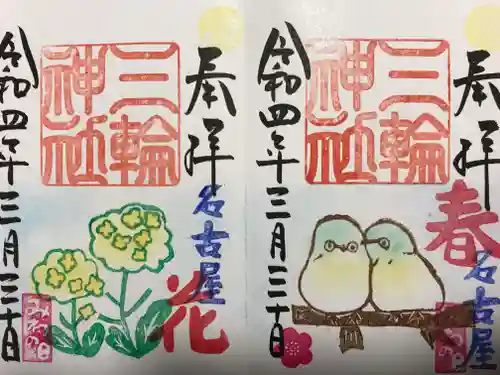 奉拝
春
名古屋
三輪
神社
令和四年三月三十日
奉拝
名古屋
花
三輪
神社
令和四年三月三十日